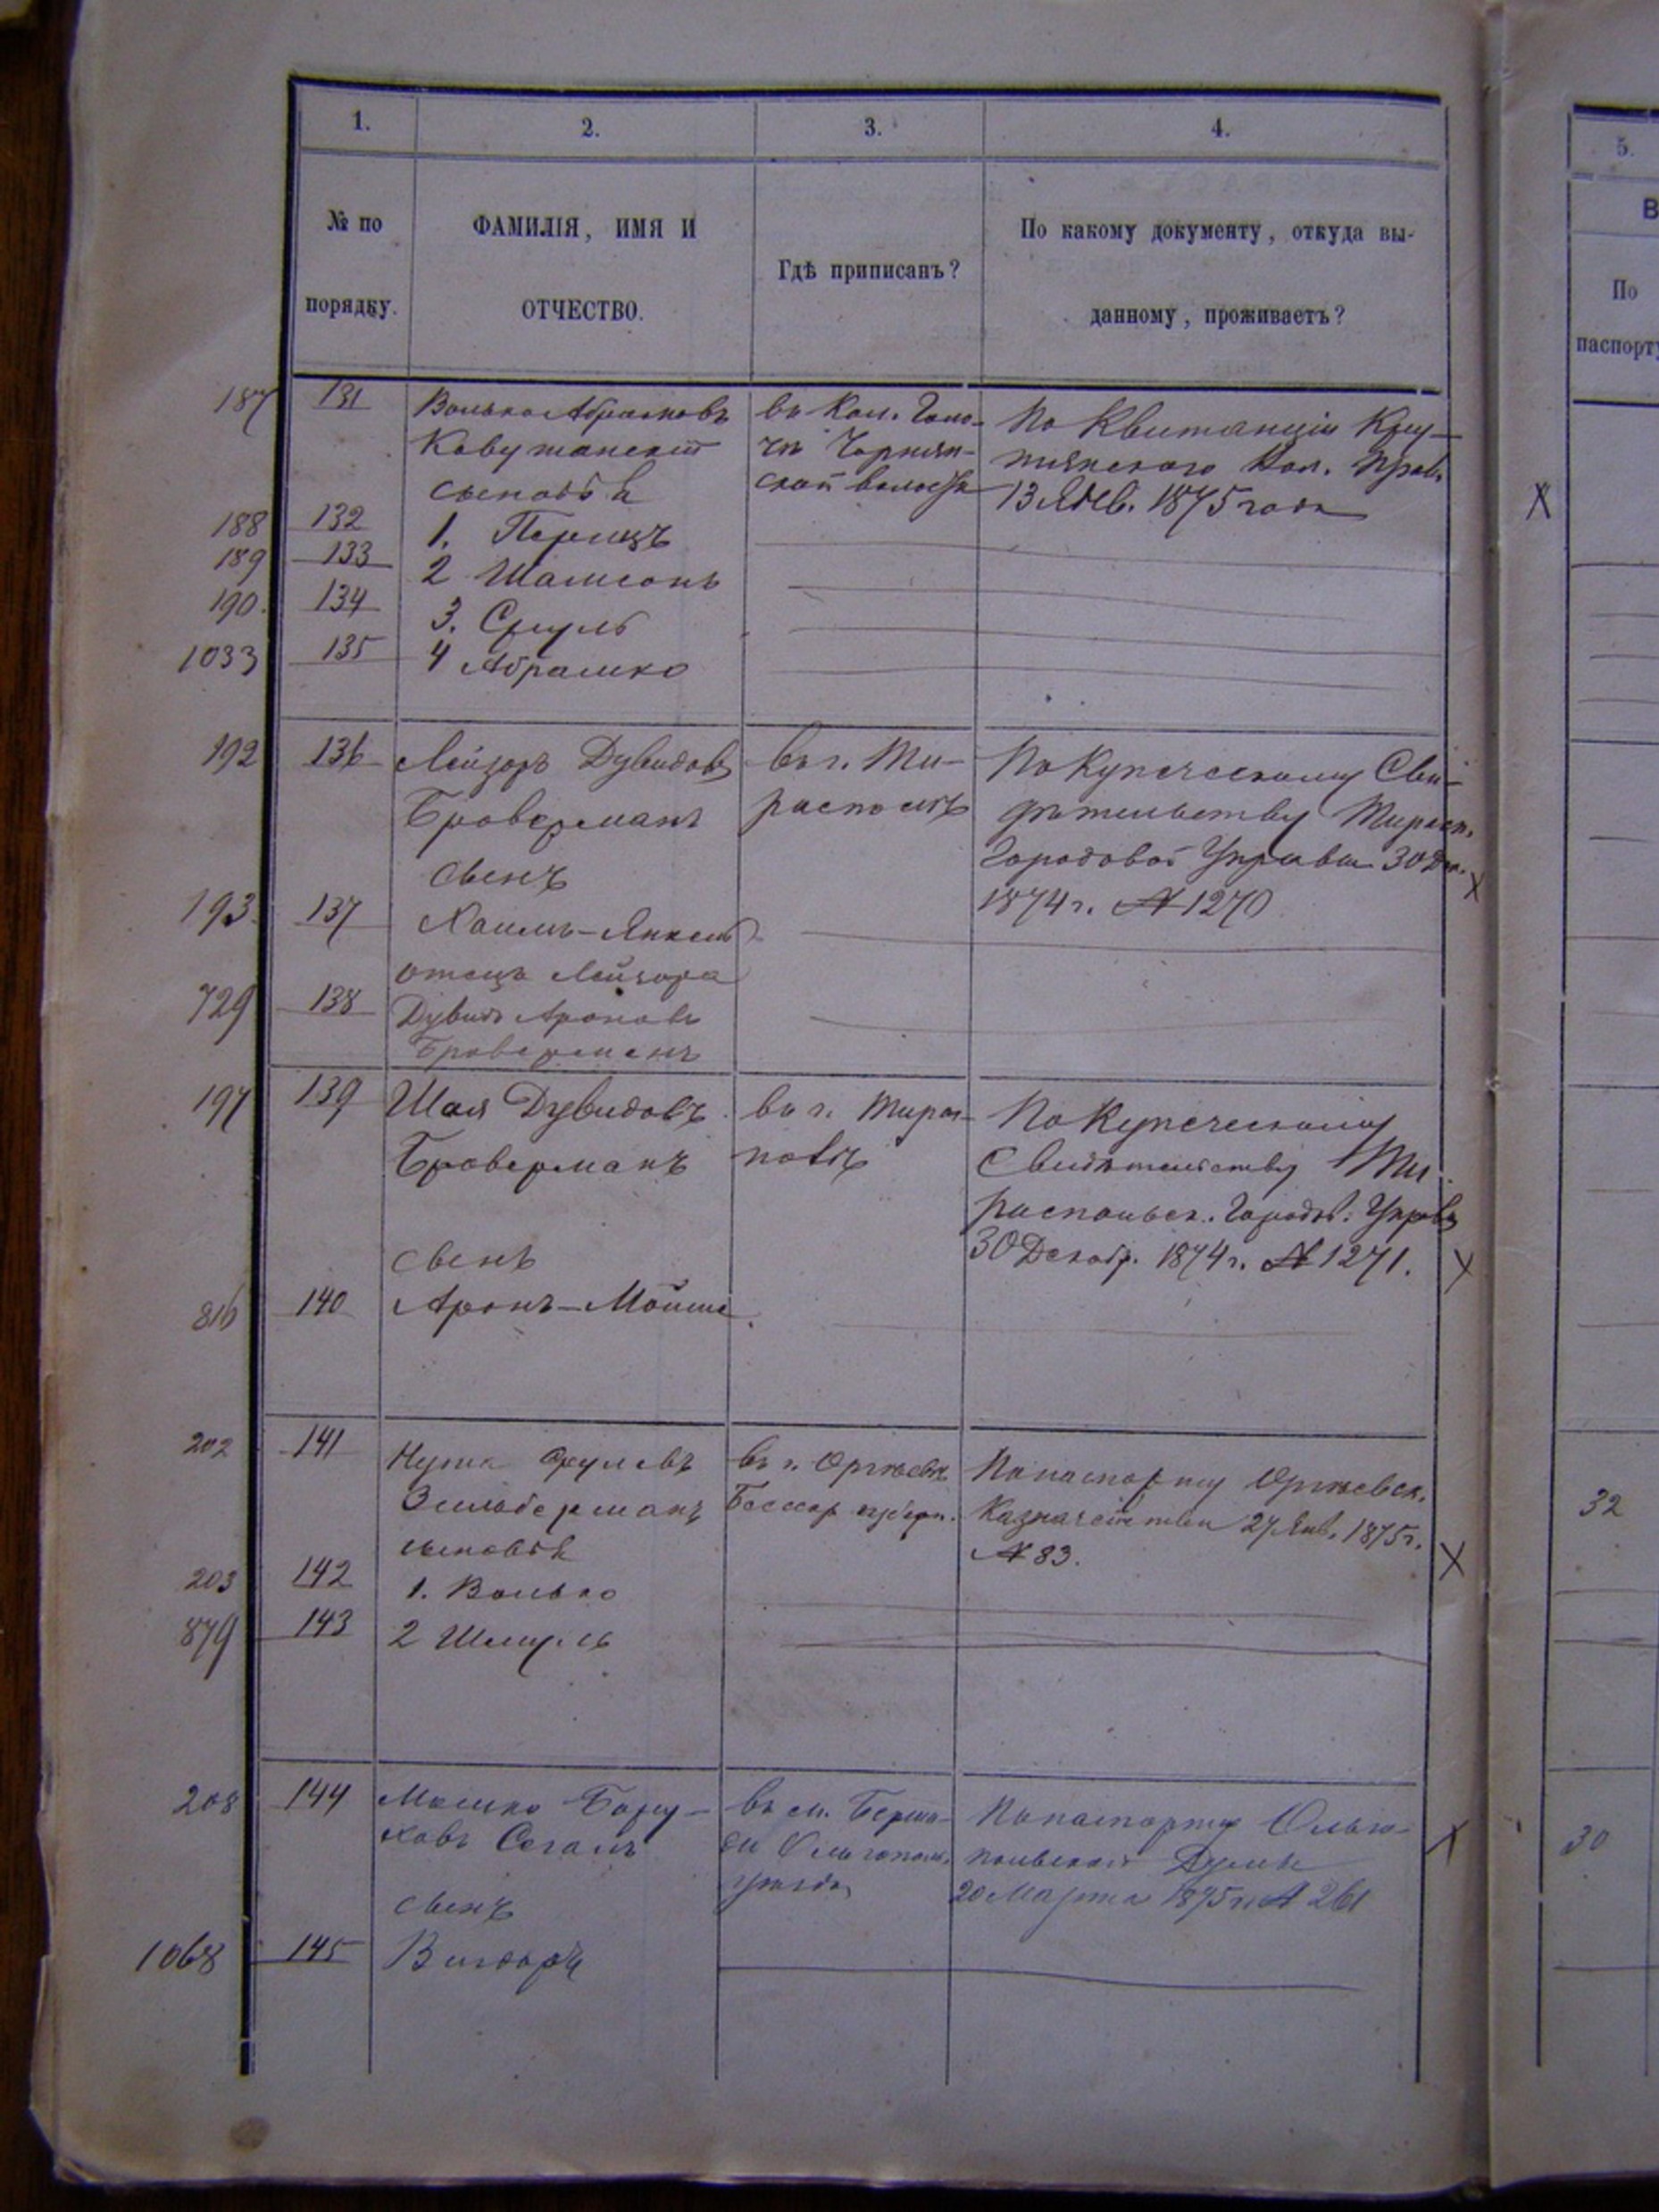 1. 2. 3. 4.
№ по порядку.
ФАМИЛІЯ, ИМЯ И
ОТЧЕСТВО.
Гдѣ приписанъ?
По какому документу, откуда вы-
данному, проживаетъ?
5.
В
По
паспорту
187 131 Волько Абрамовъ
сыновья
въ Кол.
волости
По Квитанціи
13 Янв. 1875 года
188 132 1. Перецъ
189 133 2 Шамсонъ
190. 134 3. Сруль
1033 135 4 Абрамко
192 136 Лейзоръ Дувидовъ
Броверманъ
въ г. Ти-
располѣ
По Купеческому Сви-
дѣтельству Тирасп.
Городовой Управы 30 Дек.
1874 г. № 1270
сынъ
193 137 Хаимъ-Янкель
отецъ Лейзора
729 138 Дувидъ Ароновъ
Броверманъ
197 139 Шая Дувидовъ
Броверманъ
въ г. Тирас-
полѣ
По Купеческому
Свидѣтельству Ти-
распольск. Городов. Управы
30 Декабр. 1874 г. № 1271.
сынъ
816 140 Аронъ-Мойше
202 141 Нута Срулевъ
Зильберманъ
въ г. Оргѣевѣ
Бессар. губерн.
По паспорту Оргѣевск.
Казначейства 27 Янв. 1875 г.
№ 83.
сыновья
203 142 1. Волько
879 143 2 Шмуль
32
208 144 Мошко Бору-
ховъ Сегалъ
въ м. Берша-
ди Ольгопол.
уѣзда
По паспорту Ольго-
польской Думы
20 Марта 1875 г. № 261
30
сынъ
1068 145 Вигдоръ